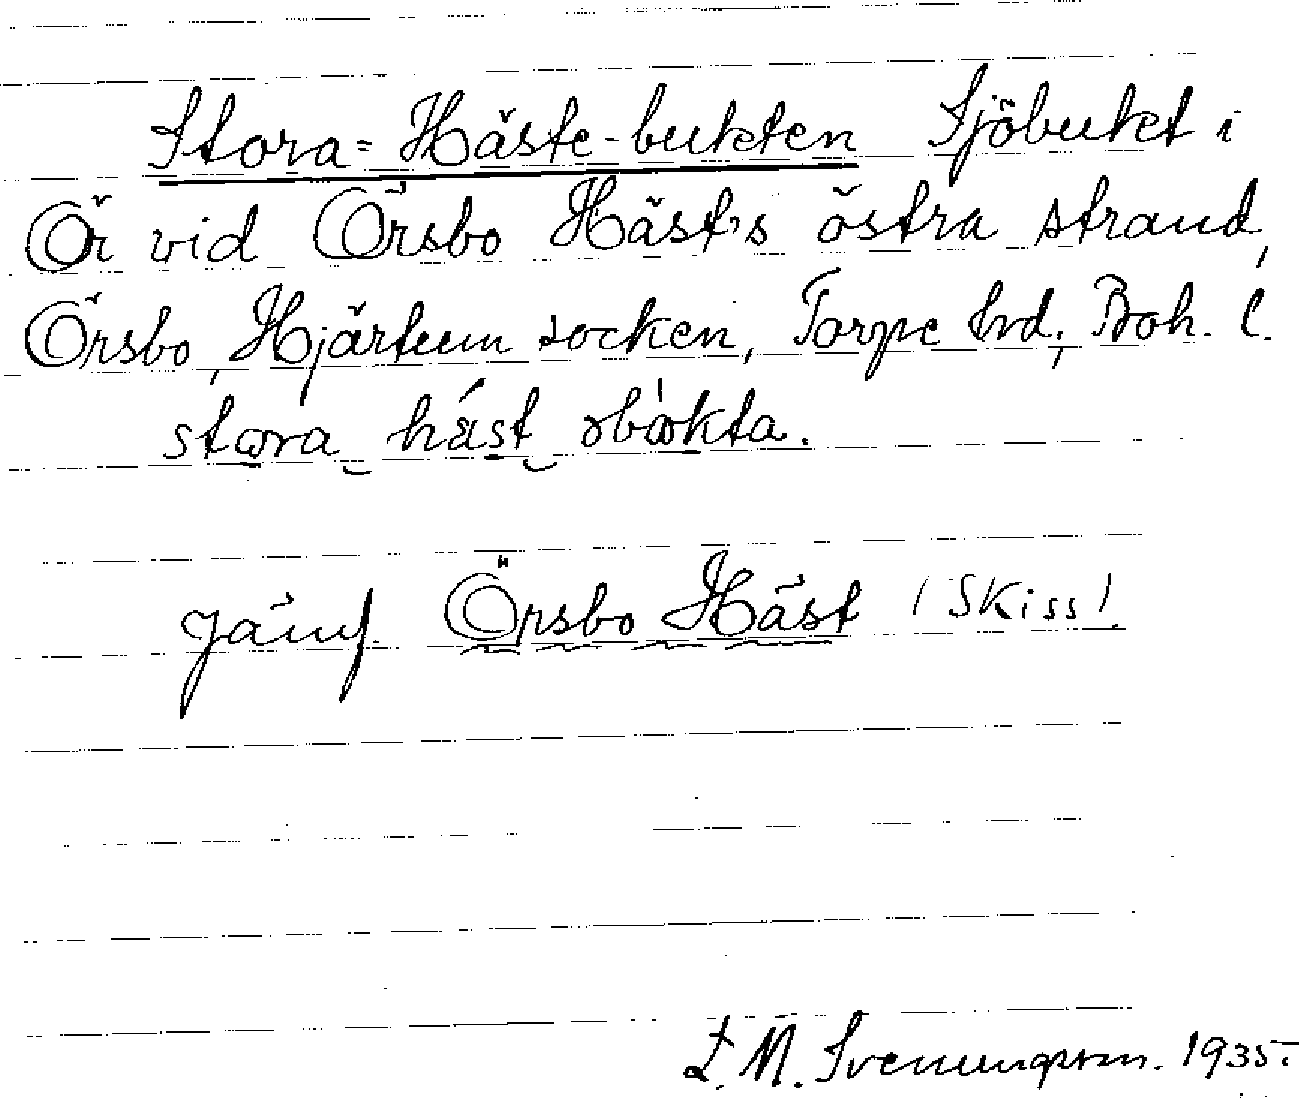 Stora=Häste-bukten Sjöbukt i
Ör vid Örsbo Häst's östra strand,
Örsbo, Hjärtum socken, Torpe hrd; Boh. l.
stora häst
Jämf. Örsbo Häst (Skiss).
L. M. Svenungsson. 1935.